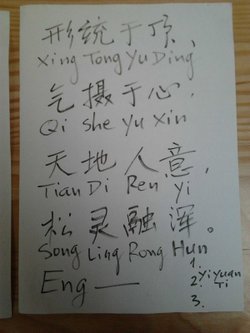 形统于顶,
Xing Tong Yu Ding
气摄于心,
Qi She Yu Xin
天地人意,
Tian Di Ren Yi
松灵融浑。
Song Ling Rong Hun
Eng —
1. Yi Yuan
2. Ti
3.